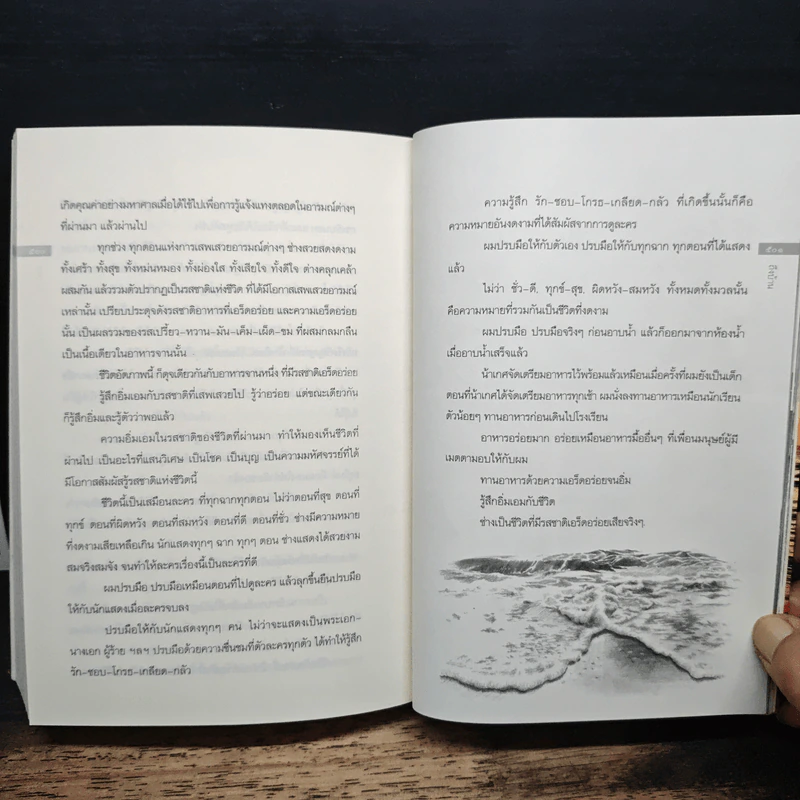 เกิดคุณค่าอย่างมหาศาลเมื่อได้ใช้ไปเพื่อการรู้แจ้งแทงตลอดในอารมณ์ต่างๆ
ที่ผ่านมา แล้วผ่านไป
ทุกช่วง ทุกตอนแห่งการเสพเสวยอารมณ์ต่างๆ ช่างสวยสดงดงาม
ทั้งเศร้า ทั้งสุข ทั้งหม่นหมอง ทั้งผ่องใส ทั้งเสียใจ ทั้งดีใจ ต่างคลุกเคล้า
ผสมกัน แล้วรวมตัวปรากฏเป็นรสชาติแห่งชีวิต ที่ได้มีโอกาสเสพเสวยอารมณ์
เหล่านั้น เปรียบประดุจดังรสชาติอาหารที่เอร็ดอร่อย และความเอร็ดอร่อย
นั้น เป็นผลรวมของรสเปรี้ยว-หวาน-มัน-เค็ม-เผ็ด-ขม ที่ผสมกลมกลืน
เป็นเนื้อเดียวในอาหารจานนั้น
ชีวิตอัตภาพนี้ ก็ดุจเดียวกันกับอาหารจานหนึ่ง ที่มีรสชาติเอร็ดอร่อย
รู้สึกอิ่มเอมกับรสชาติที่เสพเสวยไป รู้ว่าอร่อย แต่ขณะเดียวกัน
ก็รู้สึกอิ่มและรู้ตัวว่าพอแล้ว
ความอิ่มเอมในรสชาติของชีวิตที่ผ่านมา ทำให้มองเห็นชีวิตที่
ผ่านไป เป็นอะไรที่แสนวิเศษ เป็นโชค เป็นบุญ เป็นความมหัศจรรย์ที่ได้
มีโอกาสสัมผัสรู้รสชาติแห่งชีวิตนี้
ชีวิตนี้เป็นเสมือนละคร ที่ทุกฉากทุกตอน ไม่ว่าตอนที่สุข ตอนที่
ทุกข์ ตอนที่ผิดหวัง ตอนที่สมหวัง ตอนที่ดี ตอนที่ชั่ว ช่างมีความหมาย
ที่งดงามเสียเหลือเกิน นักแสดงทุกๆ ฉาก ทุกๆ ตอน ช่างแสดงได้สวยงาม
สมจริงสมจัง จนทำให้ละครเรื่องนี้เป็นละครที่ดี
ผมปรบมือ ปรบมือเหมือนตอนที่ไปดูละคร แล้วลุกขึ้นยืนปรบมือ
ให้กับนักแสดงเมื่อละครจบลง
ปรบมือให้กับนักแสดงทุกๆ คน ไม่ว่าจะแสดงเป็นพระเอก-
นางเอก ผู้ร้าย ฯลฯ ปรบมือด้วยความชื่นชมที่ตัวละครทุกตัว ได้ทำให้รู้สึก
รัก-ชอบ-โกรธ-เกลียด-กลัว
ความรู้สึก รัก-ชอบ-โกรธ-เกลียด-กลัว ที่เกิดขึ้นนั้นก็คือ
ความหมายอันงดงามที่ได้สัมผัสจากการดูละคร
ผมปรบมือให้กับตัวเอง ปรบมือให้กับทุกฉาก ทุกตอนที่ได้แสดง
แล้ว
ไม่ว่า ชั่ว-ดี, ทุกข์-สุข, ผิดหวัง-สมหวัง ทั้งหมดทั้งมวลนั้น
คือความหมายที่รวมกันเป็นชีวิตที่งดงาม
ผมปรบมือ ปรบมือจริงๆ ก่อนอาบน้ำ แล้วก็ออกมาจากห้องน้ำ
เมื่ออาบน้ำเสร็จแล้ว
น้าเกศจัดเตรียมอาหารไว้พร้อมแล้วเหมือนเมื่อครั้งที่ผมยังเป็นเด็ก
ตอนที่น้าเกศได้จัดเตรียมอาหารทุกเช้า ผมนั่งลงทานอาหารเหมือนนักเรียน
ตัวน้อยๆ ทานอาหารก่อนเดินไปโรงเรียน
อาหารอร่อยมาก อร่อยเหมือนอาหารมื้ออื่นๆ ที่เพื่อนมนุษย์ผู้มี
เมตตามอบให้กับผม
ทานอาหารด้วยความเอร็ดอร่อยจนอิ่ม
รู้สึกอิ่มเอมกับชีวิต
ช่างเป็นชีวิตที่มีรสชาติเอร็ดอร่อยเสียจริงๆ
ถึงบ้าน